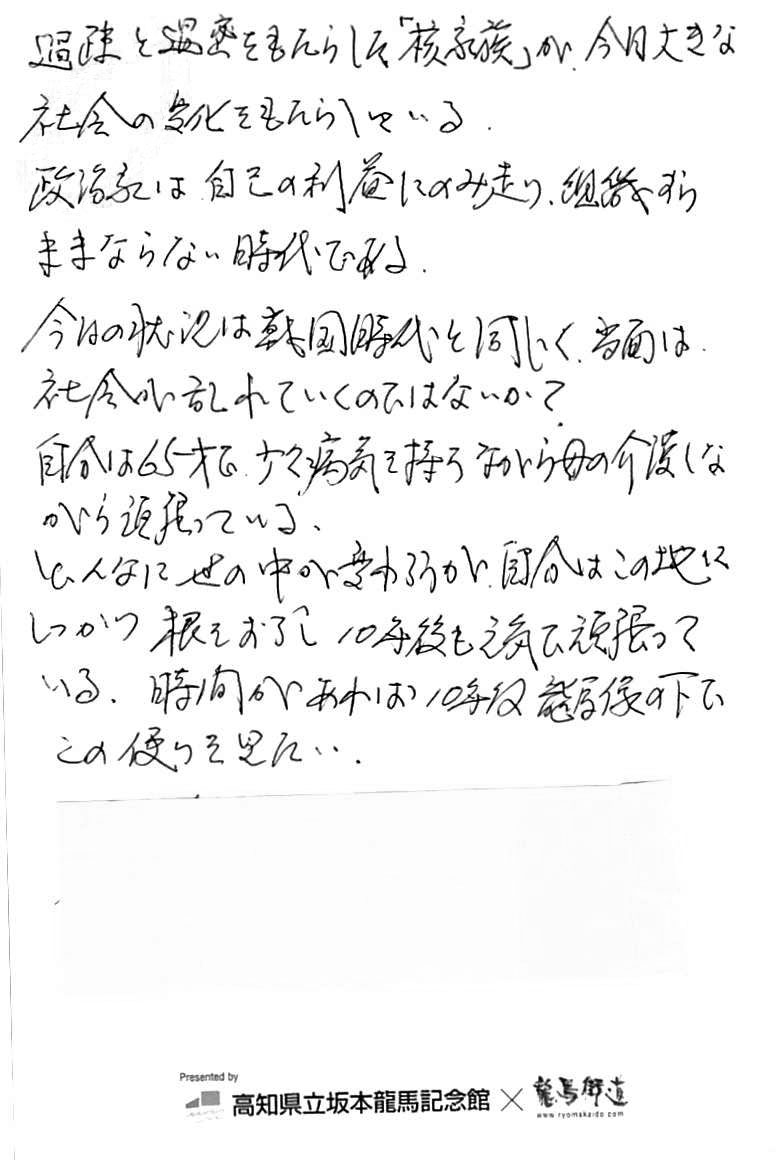 過疎と過密をもたらした「核家族」が、今日大きな
社会の変化をもたらしている.
政治家は自己の利益にのみ走り、組織すら
ままならない時代である.
今日の状況は戦国時代と同じく、当面は
社会が乱れていくのではないか？
自分は65才で、少々病気を持ちながら母の介護しな
がら頑張っている、
どんなに世の中が変わろうが、自分はこの地に
しっかり根をおろし10年後も元気で頑張って
いる、時間があれば10年後龍馬像の下で
この便りを見たい.
Presented by
高知県立坂本龍馬記念館×龍馬街道
www.ryomakaido.com